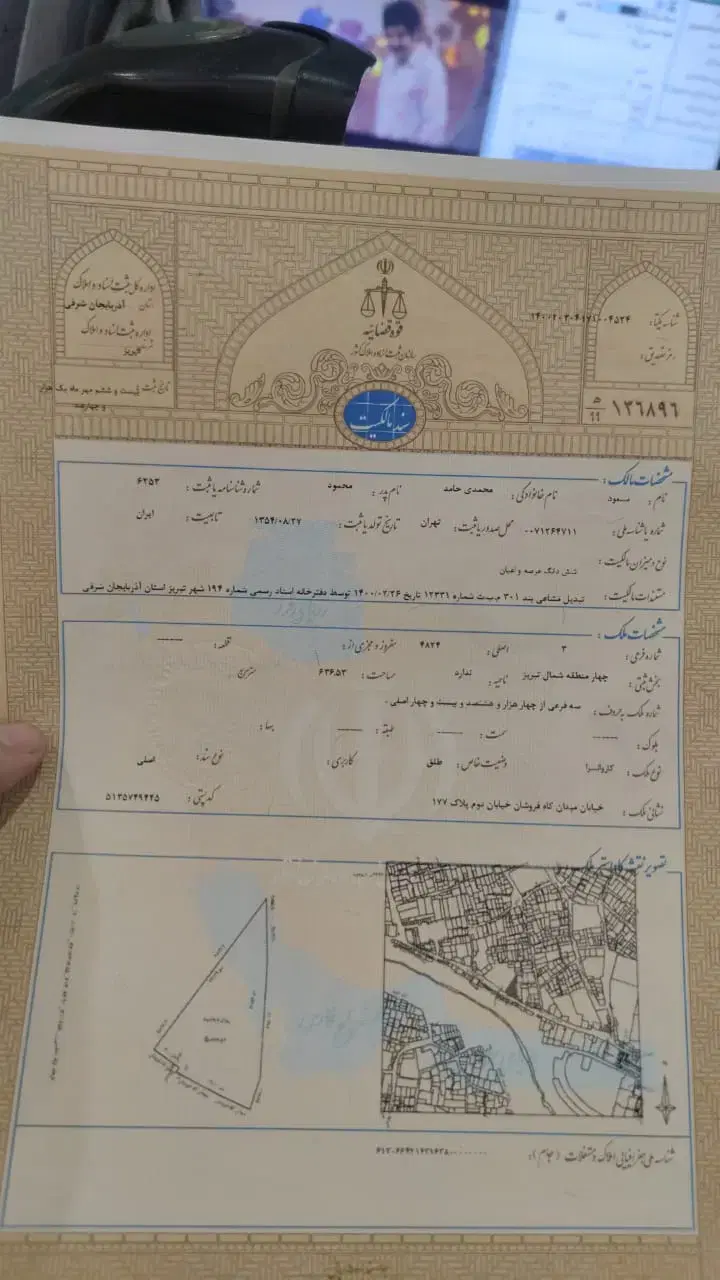 اداره کل ثبت اسناد و املاک
استان آذربایجان شرقی
اداره ثبت اسناد و املاک
تبریز
تاریخ ثبت: بیست و ششم مهر ماه یک هزار و چهارصد
قوه قضائیه
سازمان ثبت اسناد و املاک کشور
سند مالکیت
شناسه یکتا:
رمز تصدیق:
۱۳۶۸۹۶
مشخصات مالک:
نام: مسعود نام خانوادگی: محمدی حامد نام پدر: محمود شماره شناسنامه یا ثبت: ۶۲۵۳
شماره یا شناسه ملی: ۰۰۷۱۲۶۴۷۱۱ محل صدور یا ثبت: تهران تاریخ تولد یا ثبت: ۱۳۵۴/۰۸/۲۷ تابعیت: ایران
نوع و میزان مالکیت: شش دانگ عرصه و اعیان
مستندات مالکیت: تبدیل مشاعی بند ۳۰۱ م.ب.ث شماره ۱۲۳۳۱ تاریخ ۱۴۰۰/۰۲/۲۶ توسط دفترخانه اسناد رسمی شماره ۱۹۴ شهر تبریز استان آذربایجان شرقی
مشخصات ملک:
شماره فرعی: ۳ اصلی: ۴۸۲۴ مفروز و مجزی از: قطعه: -----
بخش ثبتی: چهار منطقه شمال تبریز ناحیه: ندارد مساحت: ۶۳۶.۵۳ مترمربع
شماره ملک به حروف: سه فرعی از چهار هزار و هشتصد و بیست و چهار اصلی -
بلوک: ----- سمت: ----- طبقه: ----- بها:
نوع ملک: کاروانسرا وضعیت خاص: طلق کاربری: نوع سند: اصلی
نشانی ملک: خیابان میدان کاه فروشان خیابان دوم پلاک ۱۷۷ کدپستی: ۵۱۳۵۷۴۹۴۴۵
تصویر نقشه کاداستر ملک
شناسه ملی جغرافیایی املاک و مستغلات (جام):